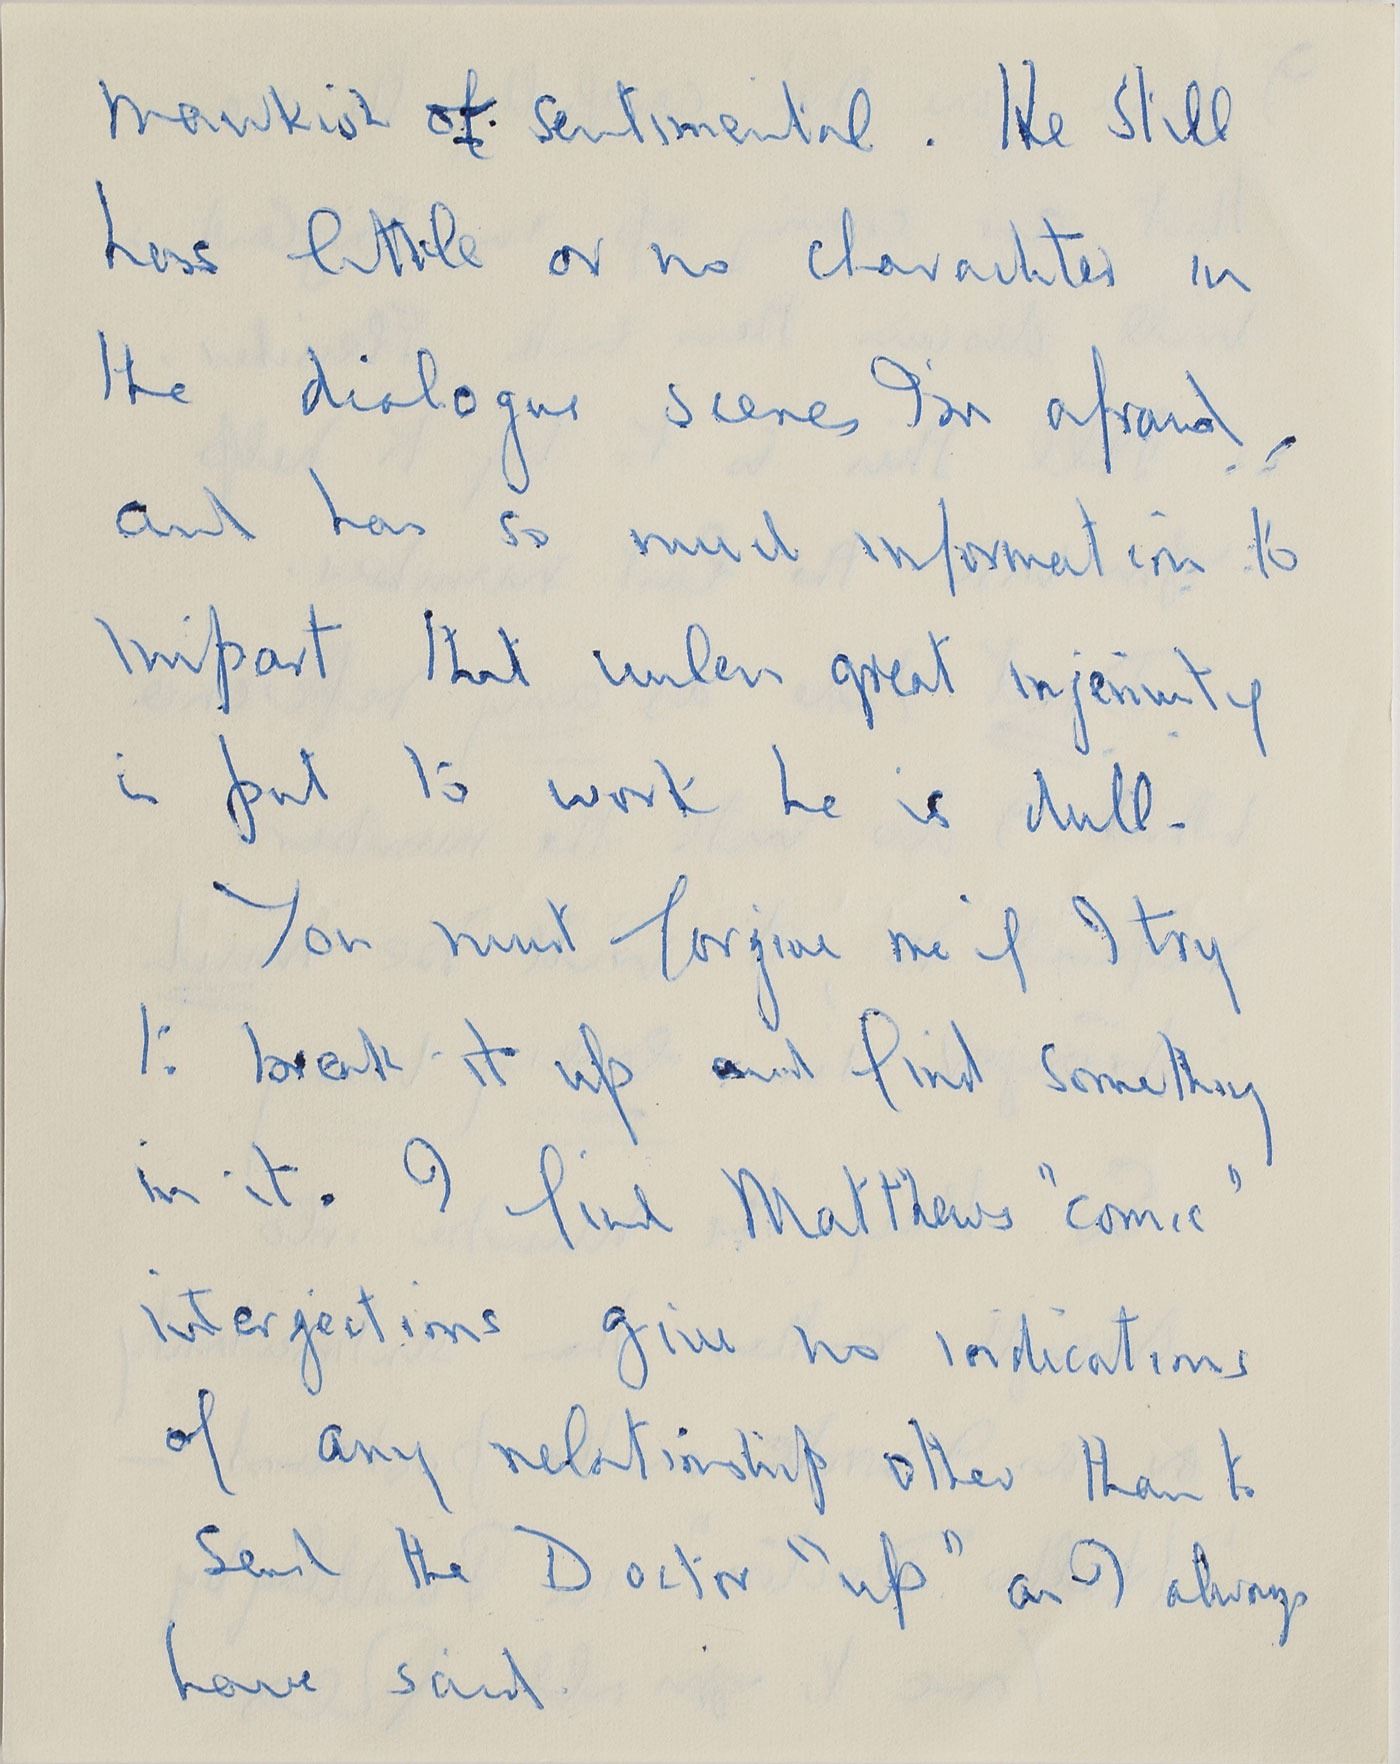 mawkish of sentimental. He still
has little or no charachter in
the dialogue scenes I'm afraid,
and has so much information to
impart that unless great injenuity
is put to work he is dull.
You must forgive me if I try
to break it up and find something
in it. I find Matthews "comic"
interjections give no indications
of any relationship other than to
send the Doctor "up" as I always
have said.